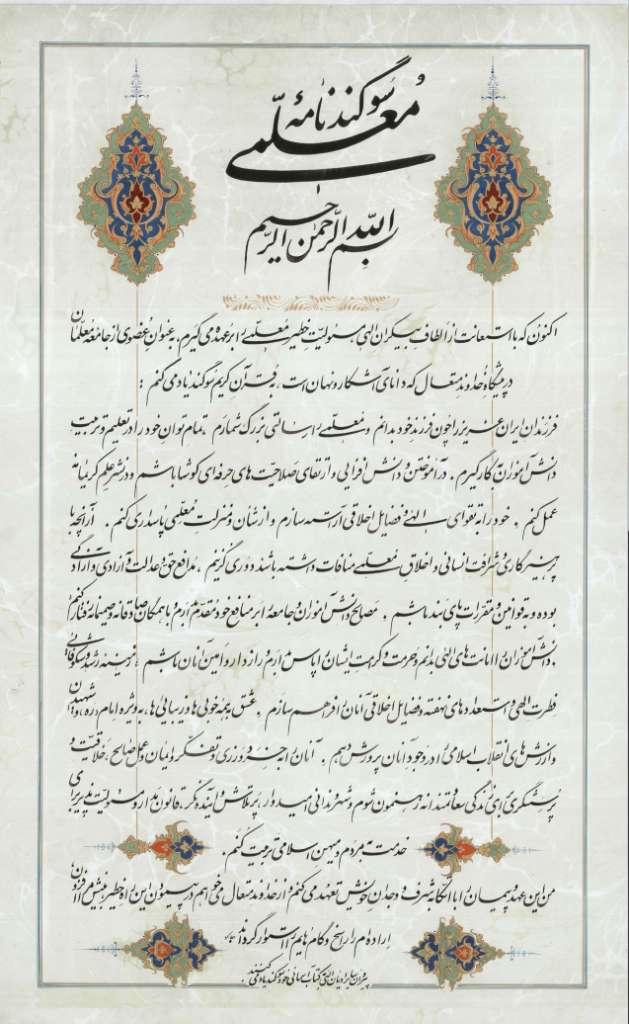 سوگند نامهٔ
معلمی
بسم الله الرحمن الرحیم
اکنون که با استعانت از الطاف بیکران الهی مسئولیت خطیر معلمی را بر عهده می گیرم، به عنوان عضوی از جامعه معلمان
در پیشگاه خداوند متعال که دانای آشکار و نهان است، به قرآن کریم سوگند یاد می کنم :
فرزندان ایران عزیز را چون فرزند خود بدانم و معلمی را رسالتی بزرگ شمارم ، تمام توان خود را در تعلیم و تربیت
دانش آموزان به کار گیرم . در آموختن و دانش افزایی و ارتقای صلاحیت های حرفه ای کوشا باشم و در نشر علم کریمانه
عمل کنم . خود را به تقوای الهی و فضایل اخلاقی آراسته سازم و از شأن و منزلت معلمی پاسداری کنم . از آنچه با
پرهیزکاری و شرافت انسانی و اخلاق معلمی منافات داشته باشد دوری گزینم ، مدافع حق و عدالت و آزادی و آزادگی
بوده و به قوانین و مقررات پای بند باشم . مصالح دانش آموزان و جامعه را بر منافع خود مقدم دارم و با همگان صادقانه و صمیمانه رفتار کنم
. دانش آموزان را امانت های الهی بدانم و حرمت و کرامت ایشان را پاس دارم و رازدار و امین آنان باشم ، زمینه رشد و شکوفایی
فطرت الهی و استعدادهای نهفته و فضایل اخلاقی آنان را فراهم سازم . عشق به همه خوبی ها و زیبایی ها، به ویژه امام (ره)، شهیدان
و ارزش های انقلاب اسلامی را در وجود آنان پرورش دهم . آنان را به خردورزی و تفکر و ایمان و عمل صالح، خلاقیت و
پرسشگری برای زندگی سعادتمندانه رهنمون شوم و شهروندانی امیدوار، پرتلاش و آینده نگر، قانون مدار و مسئولیت پذیر برای
خدمت به مردم و میهن اسلامی تربیت کنم .
من این عهد و پیمان را با اتکا به شرف و وجدان خویش تعهد می کنم و از خداوند متعال می خواهم در پیمودن این راه خطیر بینش مرا افزون،
اراده ام را راسخ و گام هایم را استوار گرداند
پیروان سایر ادیان الهی به کتاب آسمانی خود سوگند یاد می کنند.